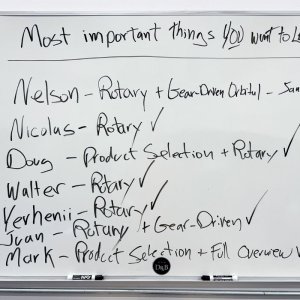 Most important things YOU want to
Nelson - Rotary + Gear-Driven Orbital -
Nicolas - Rotary ✓
Doug - Product Selection + Rotary ✓
Walter - Rotary ✓
Yevhenii - Rotary ✓
Juan - Rotary + Gear-Driven ✓
Mark - Product Selection + Full Overview ✓